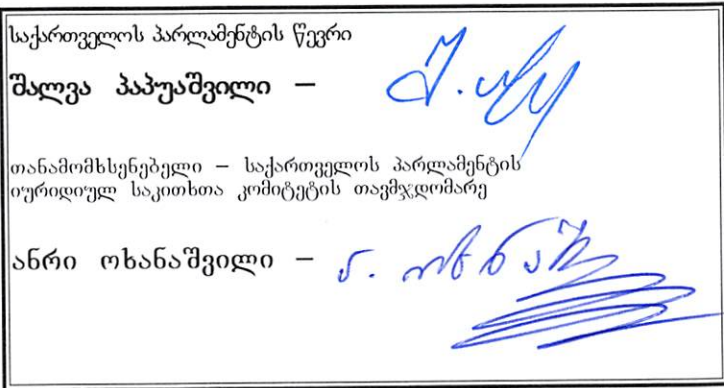 საქართველოს პარლამენტის წევრი
შალვა პაპუაშვილი –
თანამომხსენებელი – საქართველოს პარლამენტის
იურიდიულ საკითხთა კომიტეტის თავმჯდომარე
ანრი ოხანაშვილი –